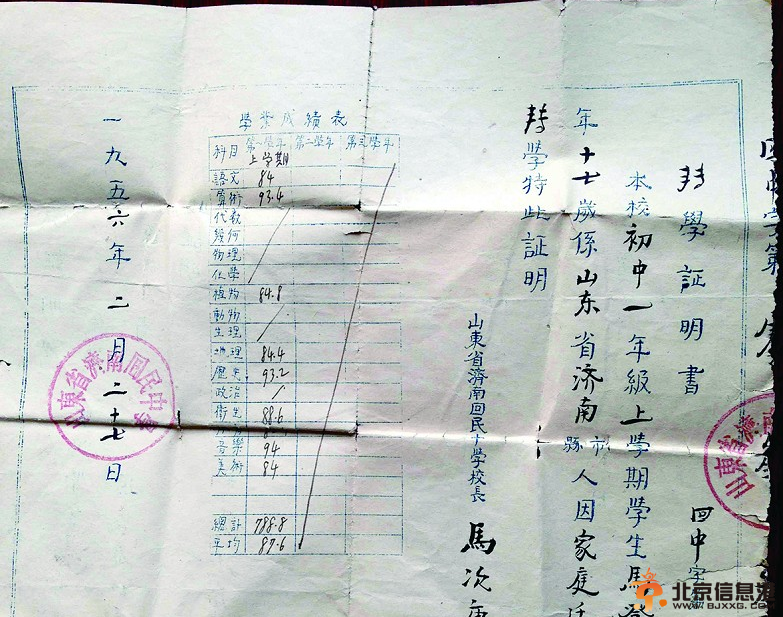 轉學證明書
四中字第
本校初中一年級上學期學生馬
年十七歲係山东省济南市縣人因家庭
轉學特此証明
山東省濟南回民中學校長 馬次
學業成績表
科目 第一學年 第二學年 第三學年
上学期
語文 84
算術 93.4
代數
幾何
物理
化學
植物 84.8
動物
生理
地理 84.4
歷史 93.2
政治
衛生 88.6
音樂 94
美術 84
總計 788.8
平均 87.6
一九五六年二月二十七日
山東省濟南回民中學
山東省濟南
北京信息港
WWW.BJXXG.COM